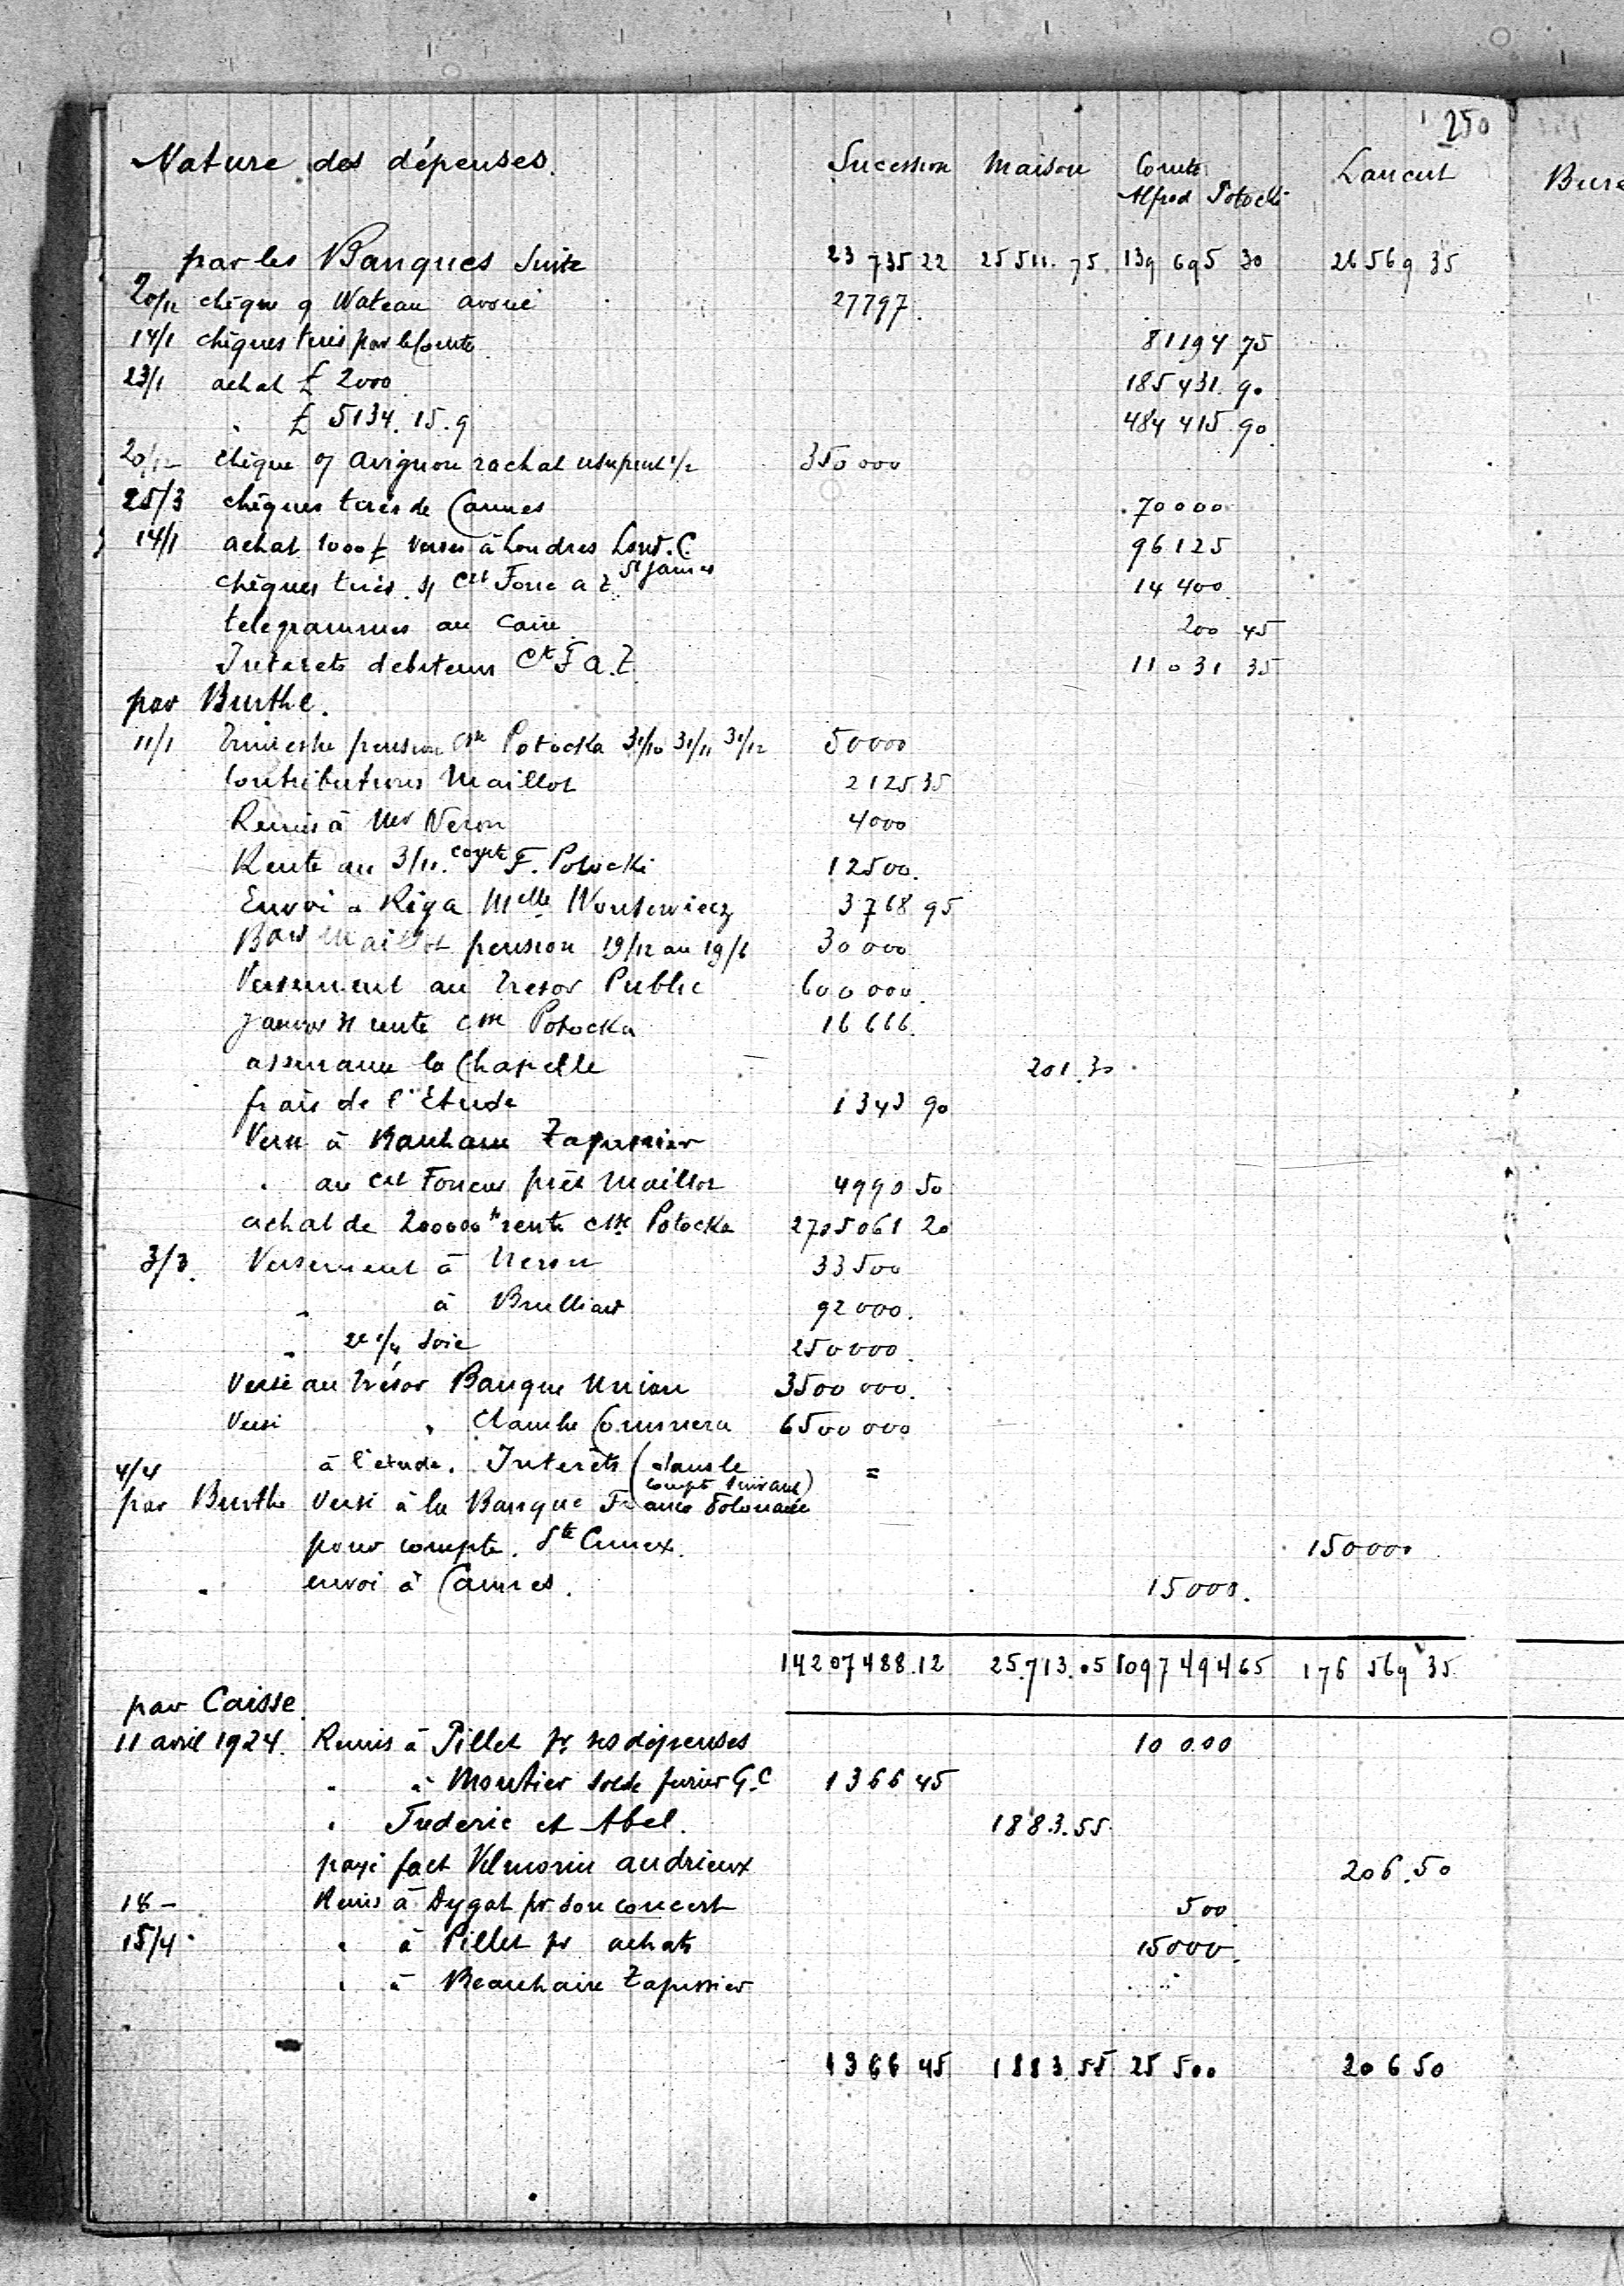 250
Nature des dépenses. Sucession Maison Comte Alfred Potocki Lancut
par les Banques Suite 23 735 22 25 511. 75. 139 695 30 26 569 35
20/12 chèque 9 Wateau avoué 27797.
14/1 chèques tirés par le Comte 81194 75
23/1 achat £ 2000 185 431. 90
" £ 5134. 15. 9 484 415. 90.
20/12 chèque 9 Avignon rachat 1/2 350 000
25/3 chèques tirés de Cannes 70000
14/1 achat 1000 £ versés à Londres Lond. C. 96125
St James
chèques tirés s/ Cdt Fonc a Z 14 400.
telegrammes au Caire 200 45
Interets debiteurs Ct F a. Z. 11031 35
par Burthe.
11/1 Trimestre pension Ctsse Potocka 31/10 31/11 31/12 50000
Contributions Maillot 2125 35
Remis à Mer Neron 4000
Rente au 3/11. comte F. Potocki 12500.
Envoi a Riga Melle 3768 95
Bard Maillot pension 19/12 au 19/6 30 000
Versement au Tresor Public 600 000.
Janvier rente Ctsse Potocka 16 666.
assurance la Chapelle 201.30
frais de l'Etude 1343 90
Versé à Tapissier
" au Cdt Foncier prêt Maillot 4990 50
achat de 200000 fr rente Ctsse Potocka 2705061 20
3/3. Versement à Neron 33 500
" à Brulliard 92 000.
" 2e 1/4 Soie 250000.
Versé au Trésor Banque Union 3500 000.
Versé " Claude Commerce 6500 000
4/4 à l'etude. Interêts (dans le compte suivant) =
par Burthe Versé à la Banque Franco Polonaise
pour compte. Sté Cimex. 150000
" envoi à Cannes. 15000.
14207488.12 25.713.05 1097494 65 176 569 35
par Caisse.
11 avril 1924. Remis à Pillet pr ses dépenses 10 000
" à Moutier solde G.C 1366 45
" Frederic et Abel. 1883.55
payé fact Vilmorin andrieux 206.50
18 - Remis à Dygat pr son concert 500
15/4 " à Pillet pr achats 15000.
" à Beauhaire Tapissier
1366 45 1883.55 25 500 206 50
Bure